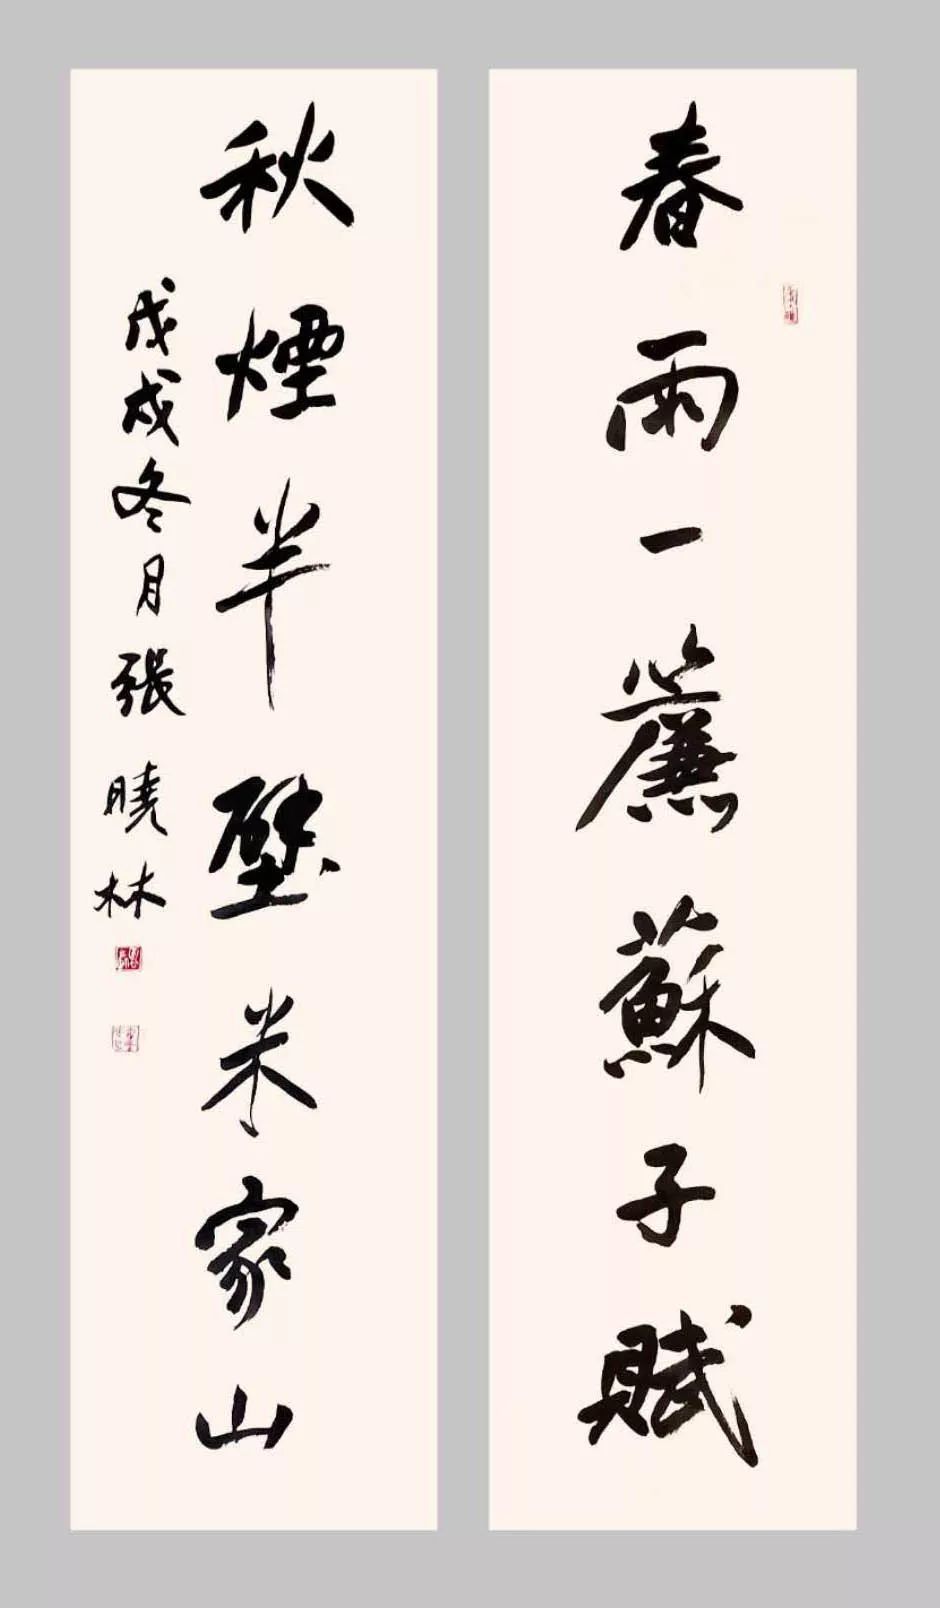 春雨一簾蘇子賦
秋煙半壁米家山
戊戌冬月張曉林